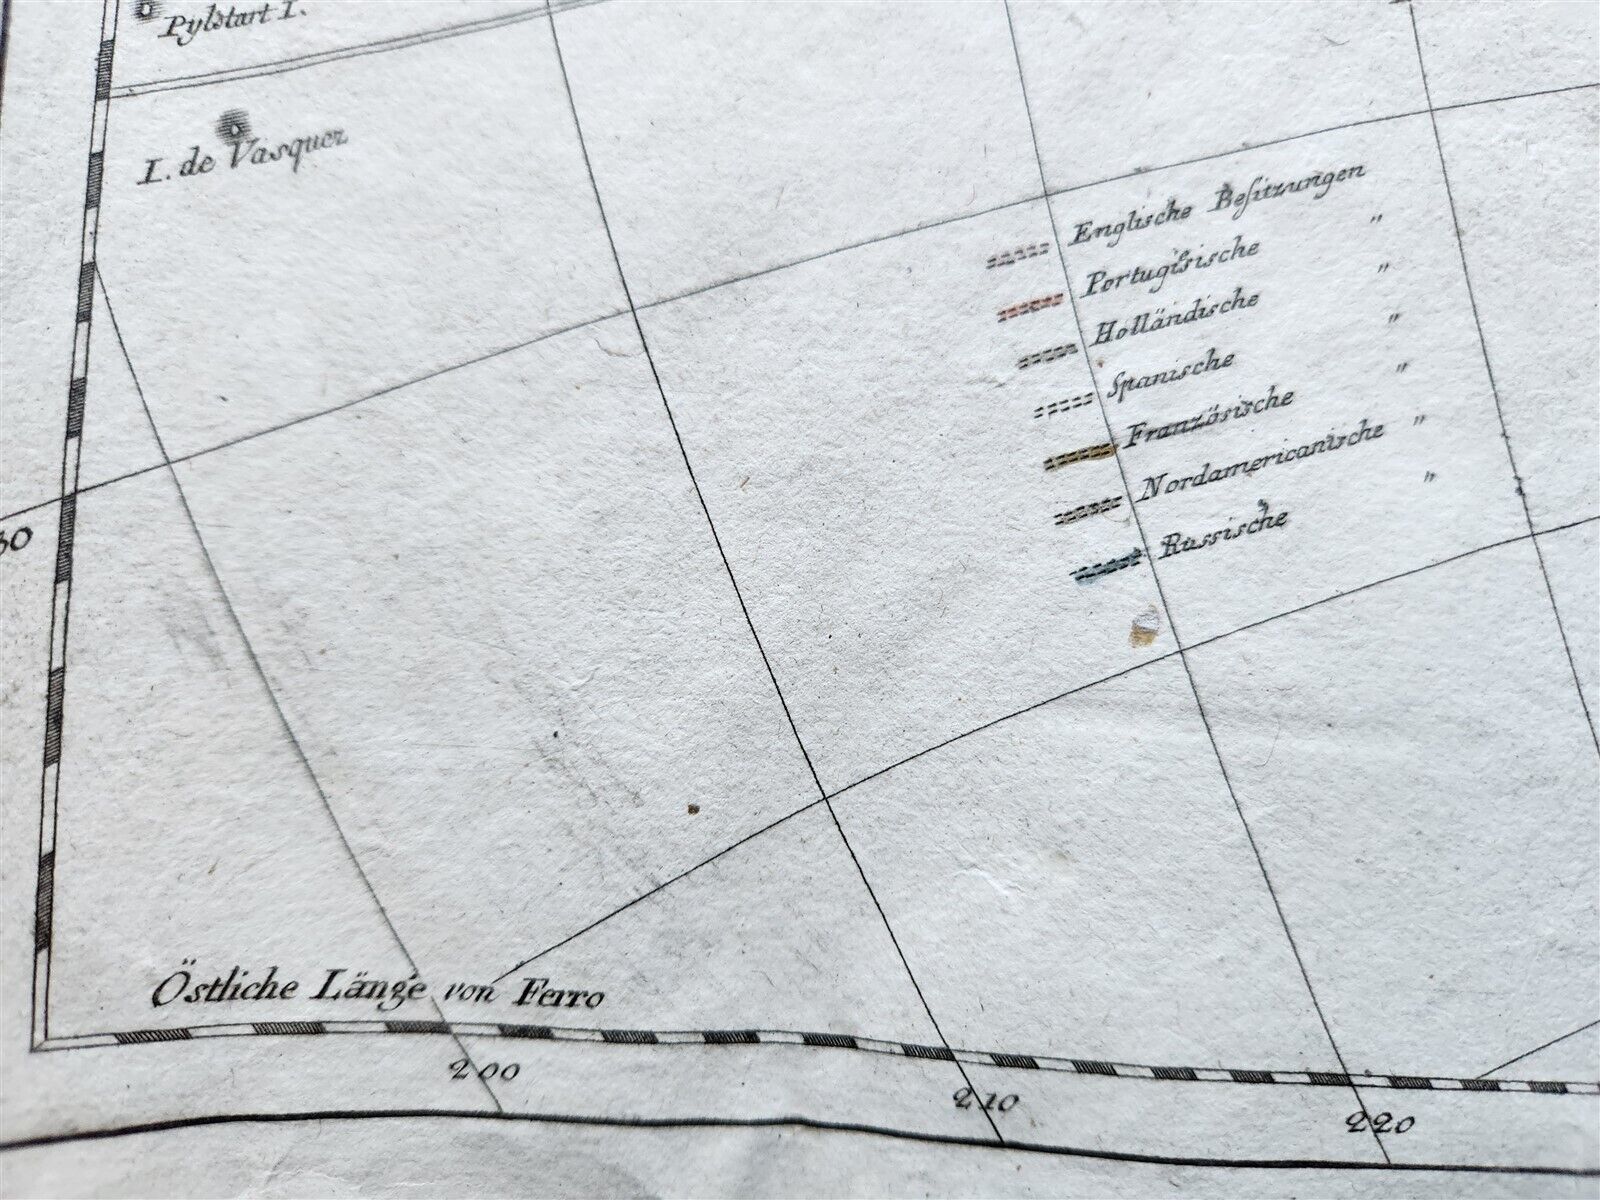 Pylstart I.
I. de Vasquez
Englische Besitzungen
Portugisische "
Holländische "
Spanische "
Französische "
Nordamericanische "
Russische "
30
Östliche Länge von Ferro
200
210
220